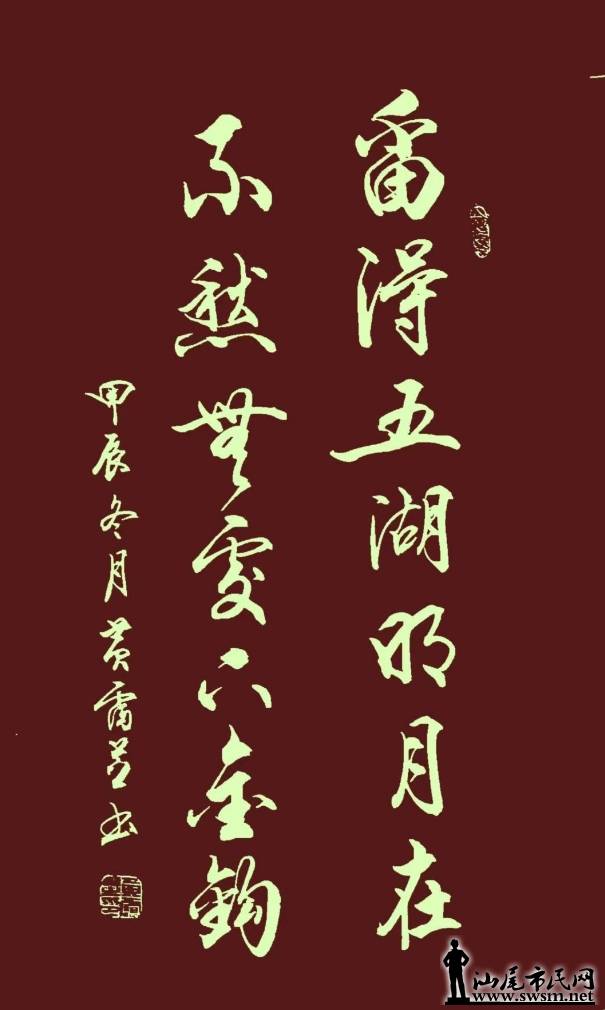 留得五湖明月在
不愁無處下金鈎
甲辰冬月黄书
汕尾市民网
www.swsm.net